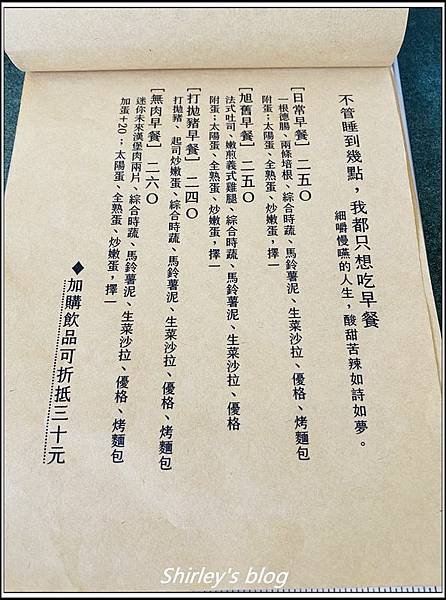 不管睡到幾點，我都只想吃早餐
細嚼慢嚥的人生，酸甜苦辣如詩如夢。
［日常早餐］二五〇
一根德腸、兩條培根、綜合時蔬、馬鈴薯泥、生菜沙拉、優格、烤麵包
附蛋：太陽蛋、全熟蛋、炒嫩蛋，擇一
［旭舊早餐］二五〇
法式吐司、嫩煎義式雞腿、綜合時蔬、馬鈴薯泥、生菜沙拉、優格
附蛋：太陽蛋、全熟蛋、炒嫩蛋，擇一
［打拋豬早餐］二四〇
打拋豬、起司炒嫩蛋、綜合時蔬、馬鈴薯泥、生菜沙拉、優格、烤麵包
［無肉早餐］二六〇
迷你未來漢堡肉兩片、綜合時蔬、馬鈴薯泥、生菜沙拉、優格、烤麵包
加蛋+20：太陽蛋、全熟蛋、炒嫩蛋，擇一
◆加購飲品可折抵三十元
Shirley's blog